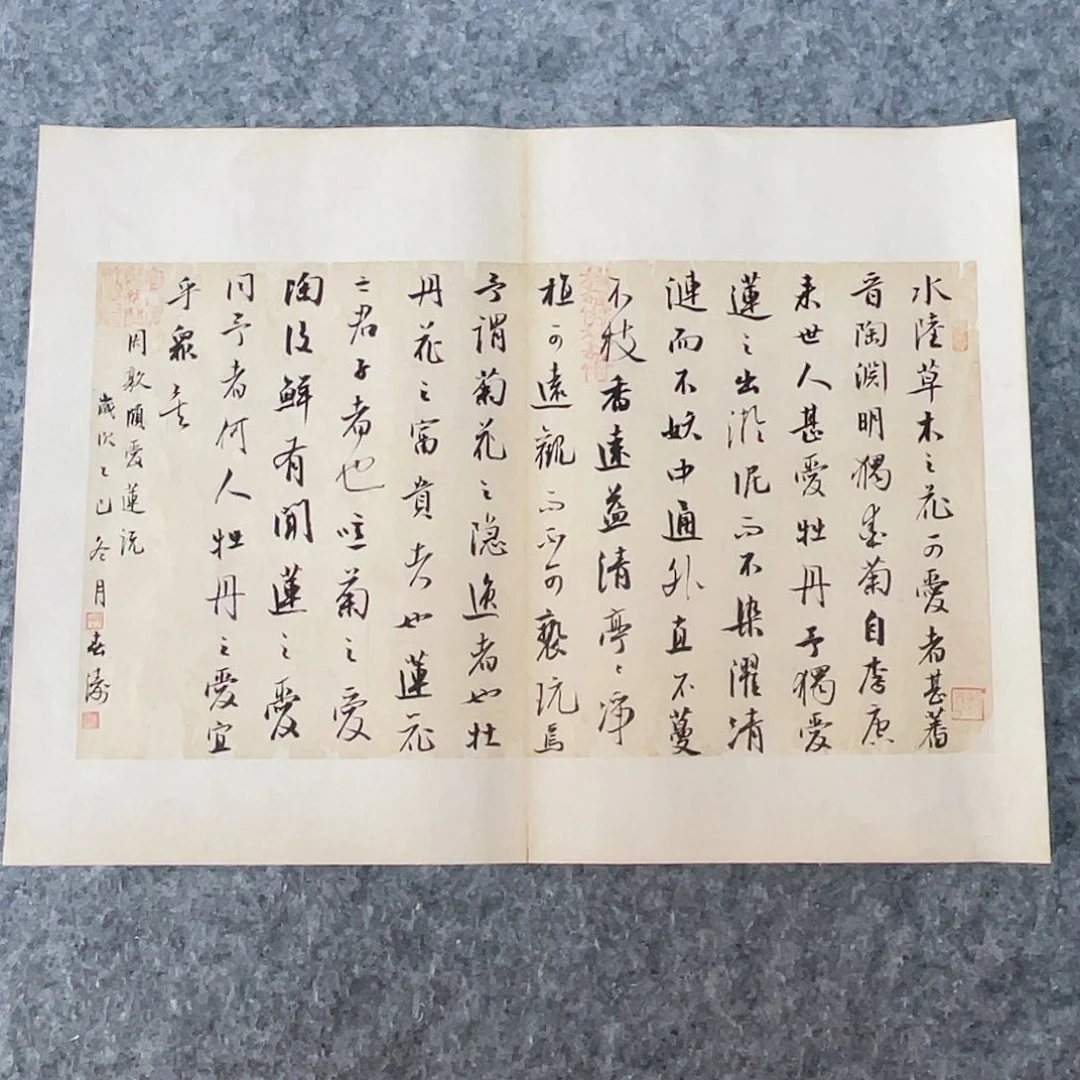 水陸草木之花可愛者甚蕃
晉陶淵明獨愛菊自李唐
来世人甚愛牡丹予獨愛
蓮之出淤泥而不染濯清
漣而不妖中通外直不蔓
不枝香遠益清亭〻淨
植可遠觀而不可褻玩焉
予謂菊花之隱逸者也牡
丹花之富貴者也蓮花
之君子者也噫菊之愛
陶後鮮有聞蓮之愛
同予者何人牡丹之愛宜
乎衆矣
周敦頤愛蓮説
歲次乙巳冬月